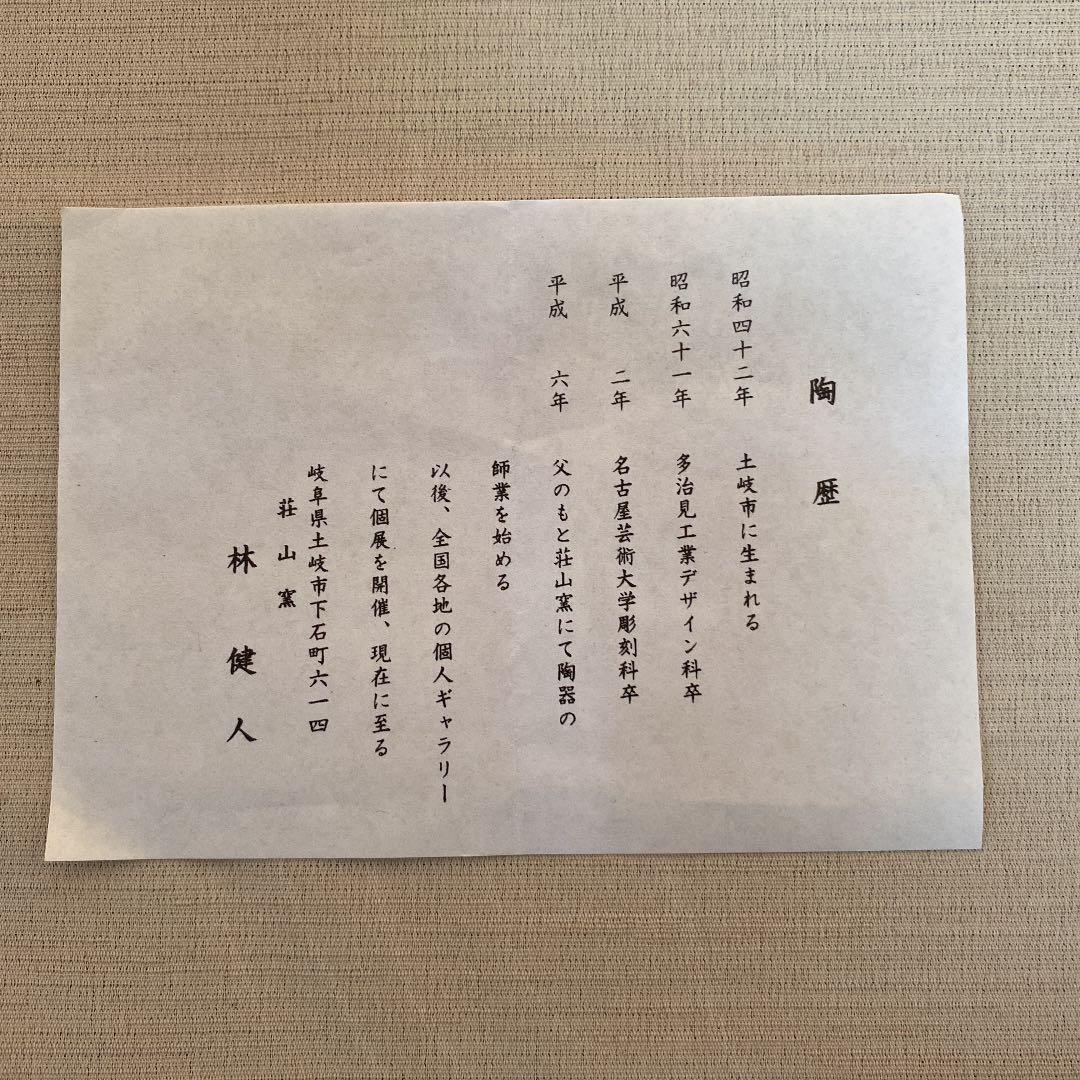 陶歴
昭和四十二年 土岐市に生まれる
昭和六十一年 多治見工業デザイン科卒
平成 二年 名古屋芸術大学彫刻科卒
平成 六年 父のもと荘山窯にて陶器の
師業を始める
以後、全国各地の個人ギャラリー
にて個展を開催、現在に至る
岐阜県土岐市下石町六一四
荘山窯
林健人